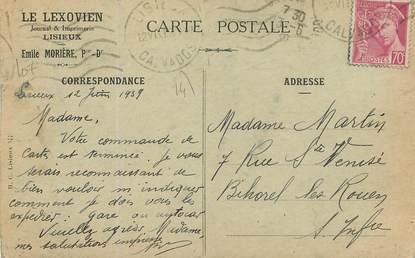 LE LEXOVIEN
Journal & Imprimerie
LISIEUX
Emile MORIÈRE, Pre-Dr
CARTE POSTALE
CORRESPONDANCE
ADRESSE
Lisieux 12 Juin 1939
Madame,
Votre commande de
Cartes est
Je vous
serais reconnaissant de
bien vouloir m'indiquer
comment je dois vous les
expédier: gare ou autocar
Veuillez agréer Madame
mes salutations
Madame Martin
7 Rue Ste Venise
Bihorel les Rouen
S. Infre
CALVADOS
70c